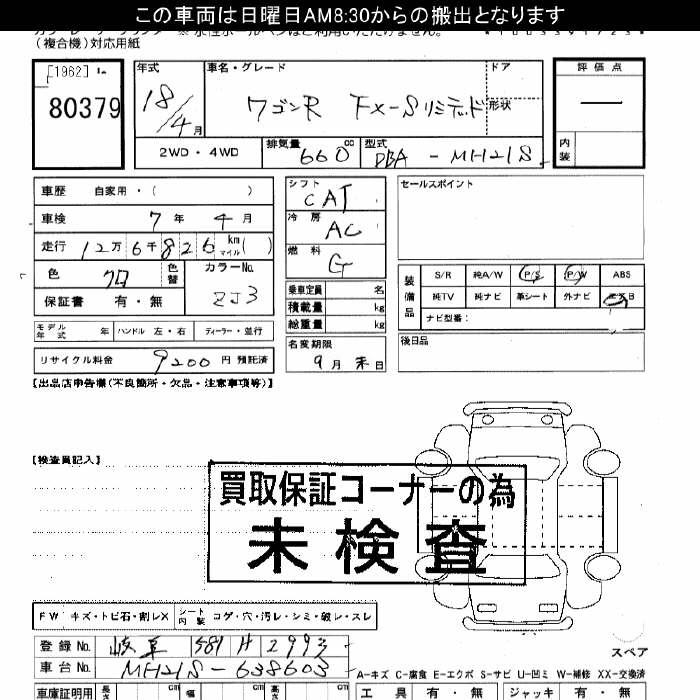 この車両は日曜日AM8:30からの搬出となります
(複合機)対応用紙
[1962]
80379
年式
18/4月
車名・グレード
ワゴンR FX-Sリミテッド
ドア
形状
評価点
—
内装
2WD・4WD
排気量 660 cc
型式 DBA - MH21S
車歴 自家用・( )
車検 7年 4月
走行 12万6千826 km マイル( )
色 クロ 色替
カラーNo. ZJ3
保証書 有・無
シフト CAT
冷房 AC
燃料 G
乗車定員 名
積載量 kg
総重量 kg
セールスポイント
装備品
S/R 純A/W P/S P/W ABS
純TV 純ナビ 革シート 外ナビ
ナビ型番:
モデル年式 年 ハンドル 左・右 ディーラー・並行
リサイクル料金 9200 円 預託済
名変期限
9月末日
後日品
【出品店申告欄(不良箇所・欠品・注意事項等)】
【検査員記入】
買取保証コーナーの為
未検査
FW キズ・トビ石・割レX シート内装 コゲ・穴・汚レ・シミ・破レ・スレ
登録No. 岐阜 581 ｻ 2993
車台No. MH21S-638603
スペア
A-キズ C-腐食 E-エクボ S-サビ U-凹ミ W-補修 XX-交換済
車庫証明用 長さ cm 幅 cm 高さ cm
工具 有・無 ジャッキ 有・無